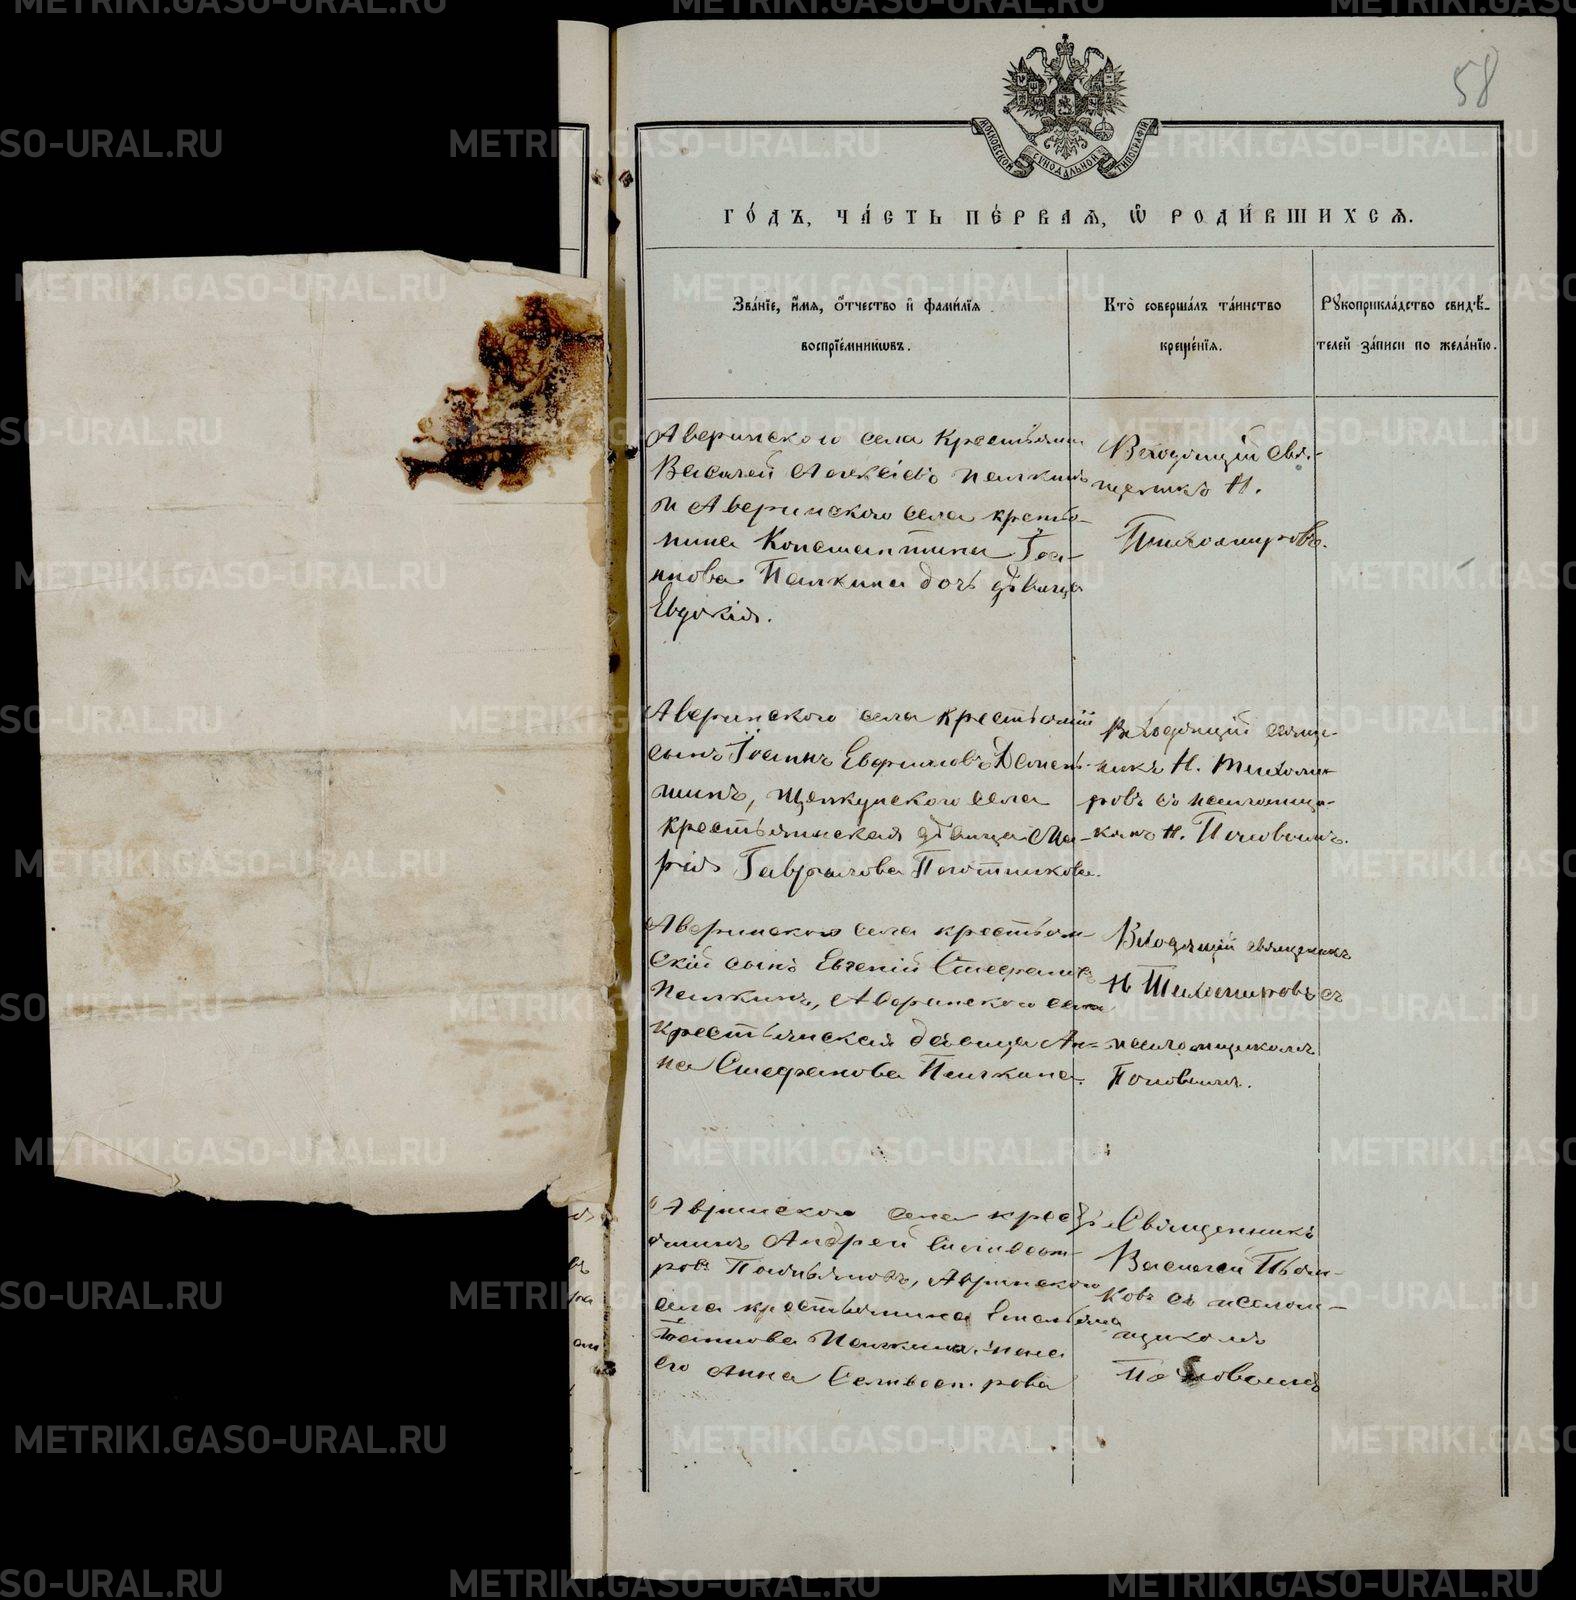 58
МОСКОВСКОЙ СѴНОДАЛЬНОЙ ТИПОГРАФІИ
ГО́ДЪ, ЧА́СТЬ ПЕ́РВАѦ, Ѡ҆ РОДИ́ВШИХСѦ.
Зва́нїе, и҆́мѧ, ѻ҆́тчество и҆ фами́лїѧ
воспрїе́мникѡвъ.
Кто̀ соверша́лъ та́инство
креще́нїѧ.
Рꙋкоприкла́дство свидѣ́-
телей за́писи по жела́нїю.
Аверинскаго села крестьянин
Василей Алексіевъ Палкинъ
и Аверинскаго села крестья-
нина Константина Іоа-
ннова Палкина дочь дѣвица
Евдокія.
Входящій свя-
щенникъ Н.
Тихомировъ.
Аверинскаго села крестьянскій
сынъ Іоаннъ Евфимовъ
Щелкунскаго села
крестьянская дѣвица Ма-
рія Гаврилова Плотникова.
Входящій священ-
никъ Н. Тихоми-
ровъ съ псаломщи-
комъ Н. Поповымъ.
Аверинскаго села крестьян-
скій сынъ Евгеній Стефановъ
Палкинъ, Аверинскаго села
крестьянская девица Ан-
на Стефанова Палкина.
Входящій священникъ
Н Тихомировъ съ
псаломщикомъ
Поповымъ.
Аверинскаго села крест
янинъ Андрей Силивест-
ровъ Аверинскаго
села крестьянина Емельяна
Іоаннова Палкина жена
его Анна Селивестрова
Священникъ
Василей Пьян-
ковъ съ псалом-
щикомъ
Поповымъ
METRIKI.GASO-URAL.RU